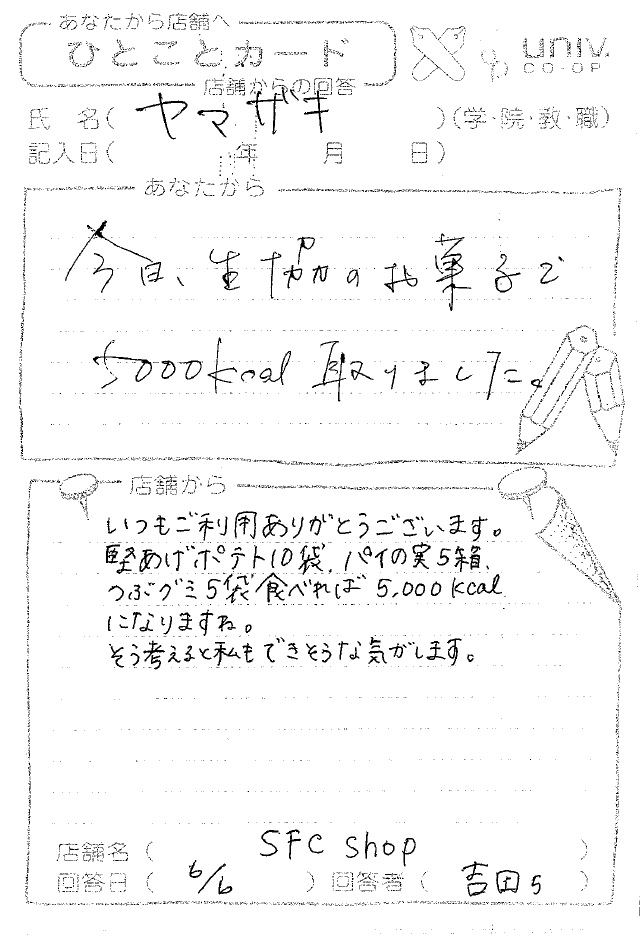 あなたから店舗へ
ひとことカード
店舗からの回答
univ.
CO-OP
氏 名(ヤマザキ)(学・院・教・職)
記入日( 年 月 日)
あなたから
今日、生協のお菓子で
5000kcal取りました。
店舗から
いつもご利用ありがとうございます。
堅あげポテト10袋、パイの実5箱、
つぶグミ5袋食べれば5,000kcal
になりますね。
そう考えると私もできそうな気がします。
店舗名( SFC shop )
回答日( 6/6 )回答者( 吉田5 )